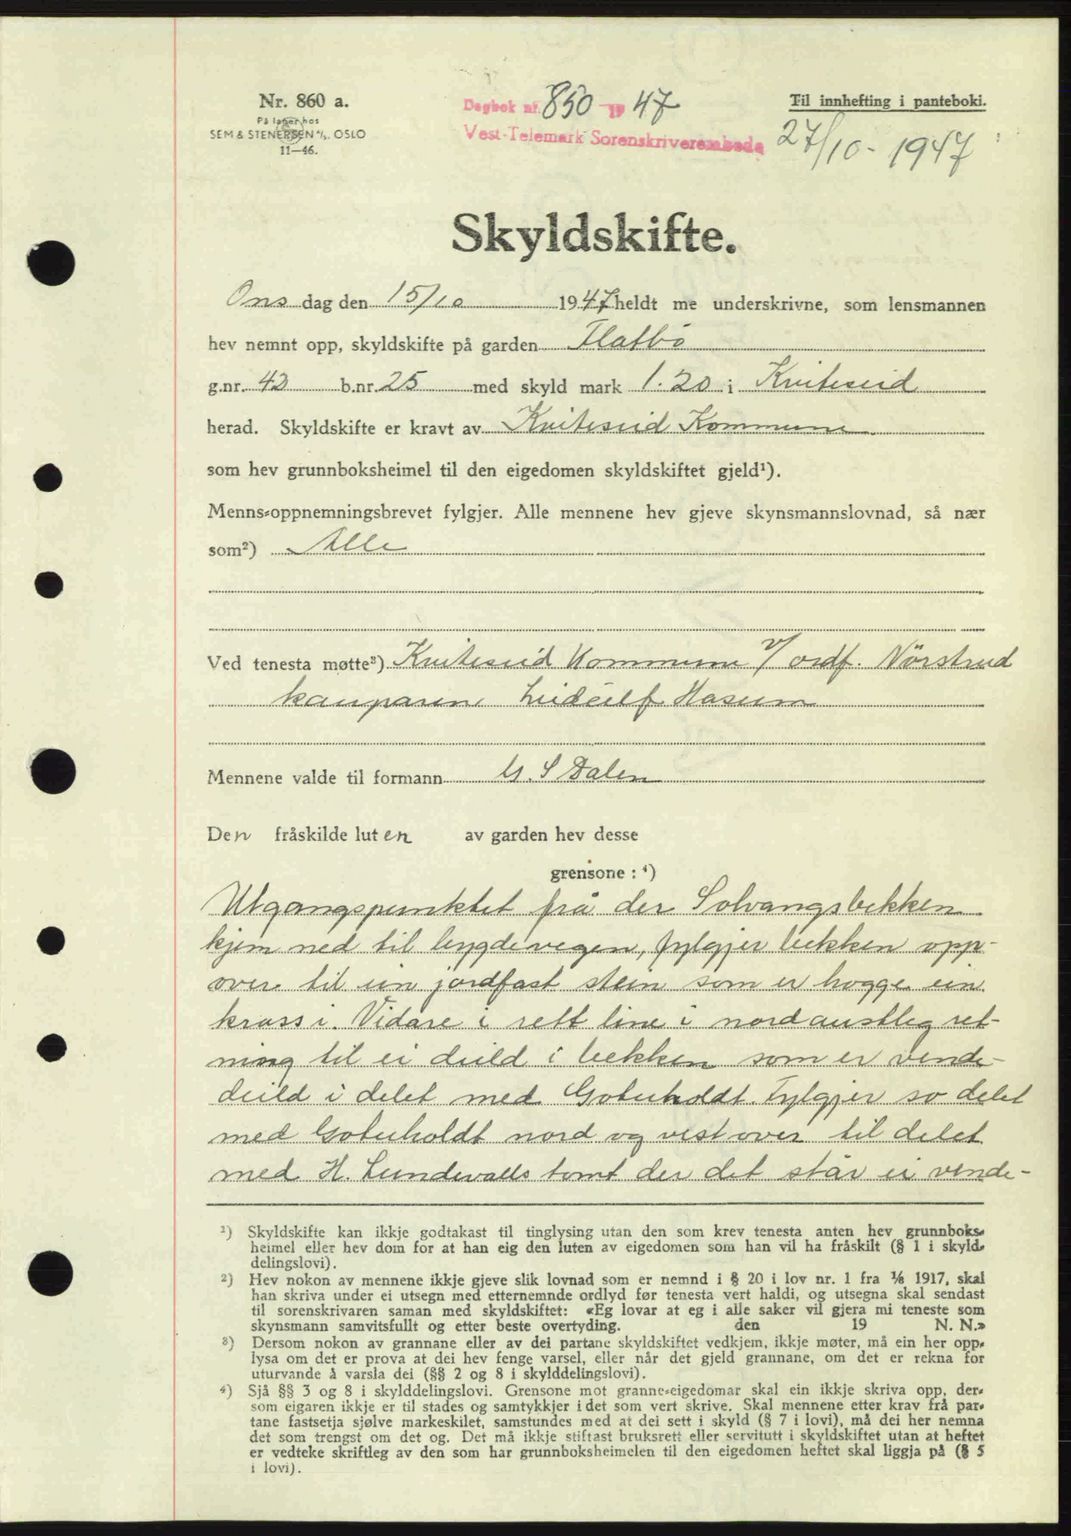 Nr. 860 a.
På lager hos
SEM & STENERSEN A/S. OSLO
11—46.
Dagbok nr. 850 19 47
Vest-Telemark Sorenskriverembede
Til innhefting i panteboki.
27/10 - 1947
Skyldskifte.
Ons dag den 15/10 1947 heldt me underskrivne, som lensmannen
hev nemnt opp, skyldskifte på garden Flatbö
g.nr. 42 b.nr. 25 med skyld mark 1.20 i Kviteseid
herad. Skyldskifte er kravt av Kviteseid Kommune
som hev grunnboksheimel til den eigedomen skyldskiftet gjeld¹).
Menns-oppnemningsbrevet fylgjer. Alle mennene hev gjeve skynsmannslovnad, så nær
som²) Alle
Ved tenesta møtte³) Kviteseid Kommune v/ ordf. Nörstrud
kauparen Hasum
Mennene valde til formann S Dalen
Den fråskilde luten av garden hev desse
grensone : ⁴)
Utgangspunktet frå der Solvangsbekken
kjem ned til bygdevegen, fylgjer bekken opp-
over til ein jordfast stein som er hogge ein
kross i. Vidare i rett line i nordaustleg ret-
ning til ei deild i bekken som er vende-
deild i delet med Goteholdt. Fylgjer so delet
med Goteholdt nord og vestover til delet
med H. Lundevalls tomt der det står ei vende-
¹) Skyldskifte kan ikkje godtakast til tinglysing utan den som krev tenesta anten hev grunnboks-
heimel eller hev dom for at han eig den luten av eigedomen som han vil ha fråskilt (§ 1 i skyld-
delingslovi).
²) Hev nokon av mennene ikkje gjeve slik lovnad som er nemnd i § 20 i lov nr. 1 fra 1/6 1917, skal
han skriva under ei utsegn med etternemnde ordlyd før tenesta vert haldi, og utsegna skal sendast
til sorenskrivaren saman med skyldskiftet: «Eg lovar at eg i alle saker vil gjera mi teneste som
skynsmann samvitsfullt og etter beste overtyding. den 19 N. N.»
³) Dersom nokon av grannane eller av dei partane skyldskiftet vedkjem, ikkje møter, må ein her opp-
lysa om det er prova at dei hev fenge varsel, eller når det gjeld grannane, om det er rekna for
uturvande å varsla dei (§§ 2 og 8 i skylddelingslovi).
⁴) Sjå §§ 3 og 8 i skylddelingslovi. Grensone mot granne-eigedomar skal ein ikkje skriva opp, der-
som eigaren ikkje er til stades og samtykkjer i det som vert skrive. Skal mennene etter krav frå par-
tane fastsetja sjølve markeskilet, samstundes med at dei sett i skyld (§ 7 i lovi), må dei her nemna
det som trengst om det og. Det må ikkje stiftast bruksrett eller servitutt i skyldskiftet utan at heftet
er vedteke skriftleg av den som har grunnboksheimelen til den eigedomen heftet skal liggja på (§ 5
i lovi).